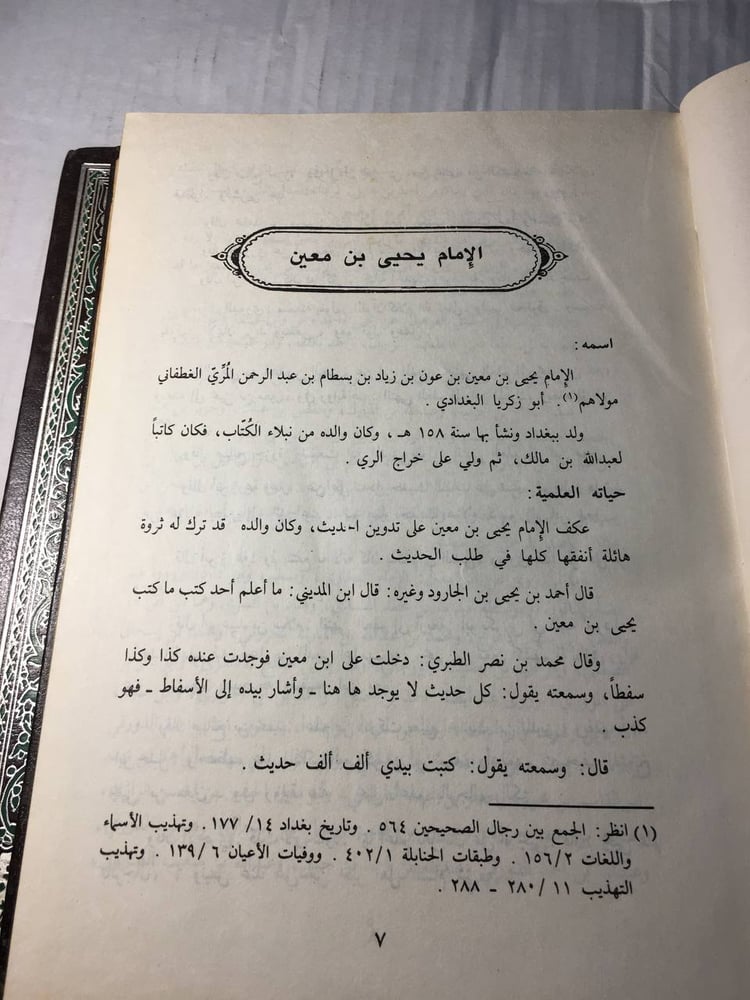 الإمام يحيى بن معين
اسمه :
الإمام يحيى بن معين بن عون بن زياد بن بسطام بن عبد الرحمن المُرِّيّ الغطفاني
مولاهم(١). أبو زكريا البغدادي .
ولد ببغداد ونشأ بها سنة ١٥٨ هـ ، وكان والده من نبلاء الكُتّاب، فكان كاتباً
لعبدالله بن مالك، ثم ولي على خراج الري .
حياته العلمية :
عكف الإمام يحيى بن معين على تدوين الحديث، وكان والده قد ترك له ثروة
هائلة أنفقها كلها في طلب الحديث .
قال أحمد بن يحيى بن الجارود وغيره: قال ابن المديني: ما أعلم أحد كتب ما كتب
يحيى بن معين .
وقال محمد بن نصر الطبري: دخلت على ابن معين فوجدت عنده كذا وكذا
سفطاً، وسمعته يقول: كل حديث لا يوجد ها هنا ـ وأشار بيده إلى الأسفاط ـ فهو
كذب .
قال: وسمعته يقول: كتبت بيدي ألف ألف حديث .
(١) انظر: الجمع بين رجال الصحيحين ٥٦٤ . وتاريخ بغداد ١٤/ ١٧٧ . وتهذيب الأسماء
واللغات ١٥٦/٢ . وطبقات الحنابلة ٤٠٢/١ . ووفيات الأعيان ١٣٩/٦ . وتهذيب
التهذيب ١١/ ٢٨٠ ـ ٢٨٨ .
٧